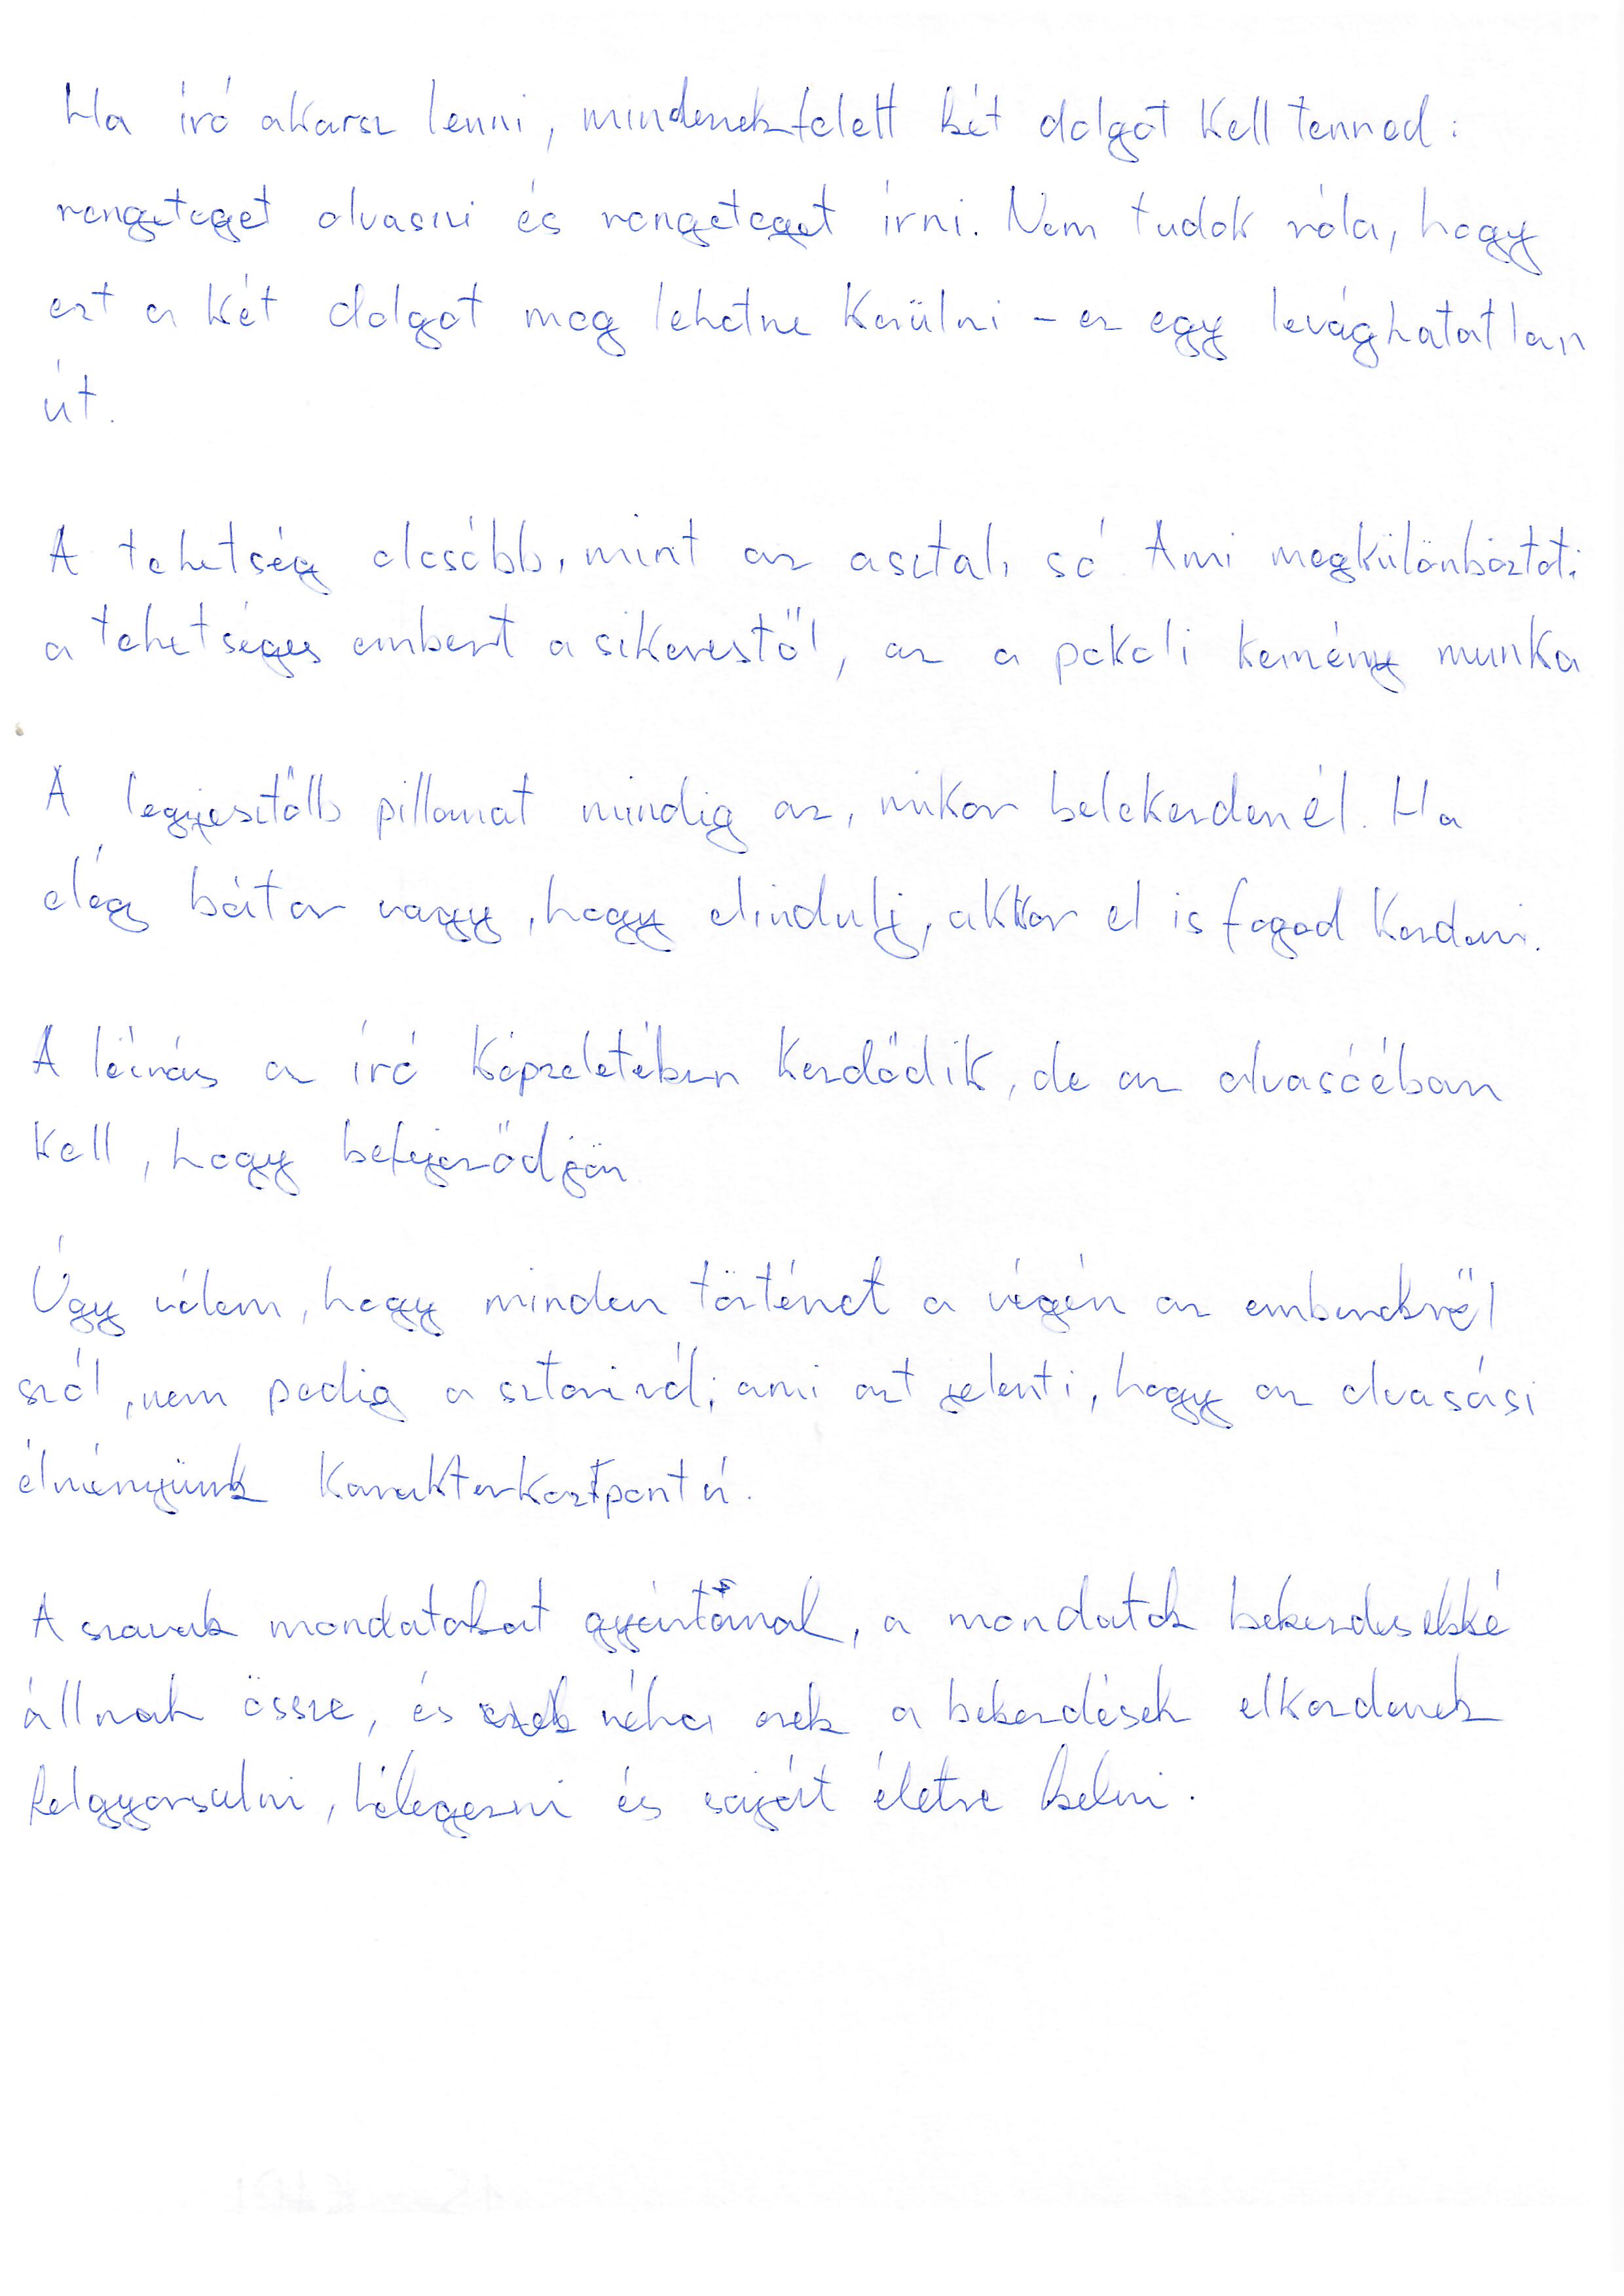 Ha író akarsz lenni, mindenekfelett két dolgot kell tenned:
rengeteget olvasni és rengeteget írni. Nem tudok róla, hogy
ezt a két dolgot meg lehetne kerülni – ez egy levághatatlan
út.
A tehetség olcsóbb, mint az asztali só. Ami megkülönbözteti
a tehetséges embert a sikerestől, az a pokoli kemény munka
A legijesztőbb pillanat mindig az, mikor belekezdenél. Ha
elég bátor vagy, hogy elindulj, akkor el is fogod kezdeni.
A leírás az író képzeletében kezdődik, de az olvasóéban
kell, hogy befejeződjön
Úgy vélem, hogy minden történet a végén az emberekről
szól, nem pedig a sztoriról; ami azt jelenti, hogy az olvasási
élményünk karakterközpontú.
A szavak mondatokat gyártanak, a mondatok bekezdésekké
állnak össze, és ezek néha ezek a bekezdések elkezdenek
felgyorsulni, lélegezni és saját életre kelni.